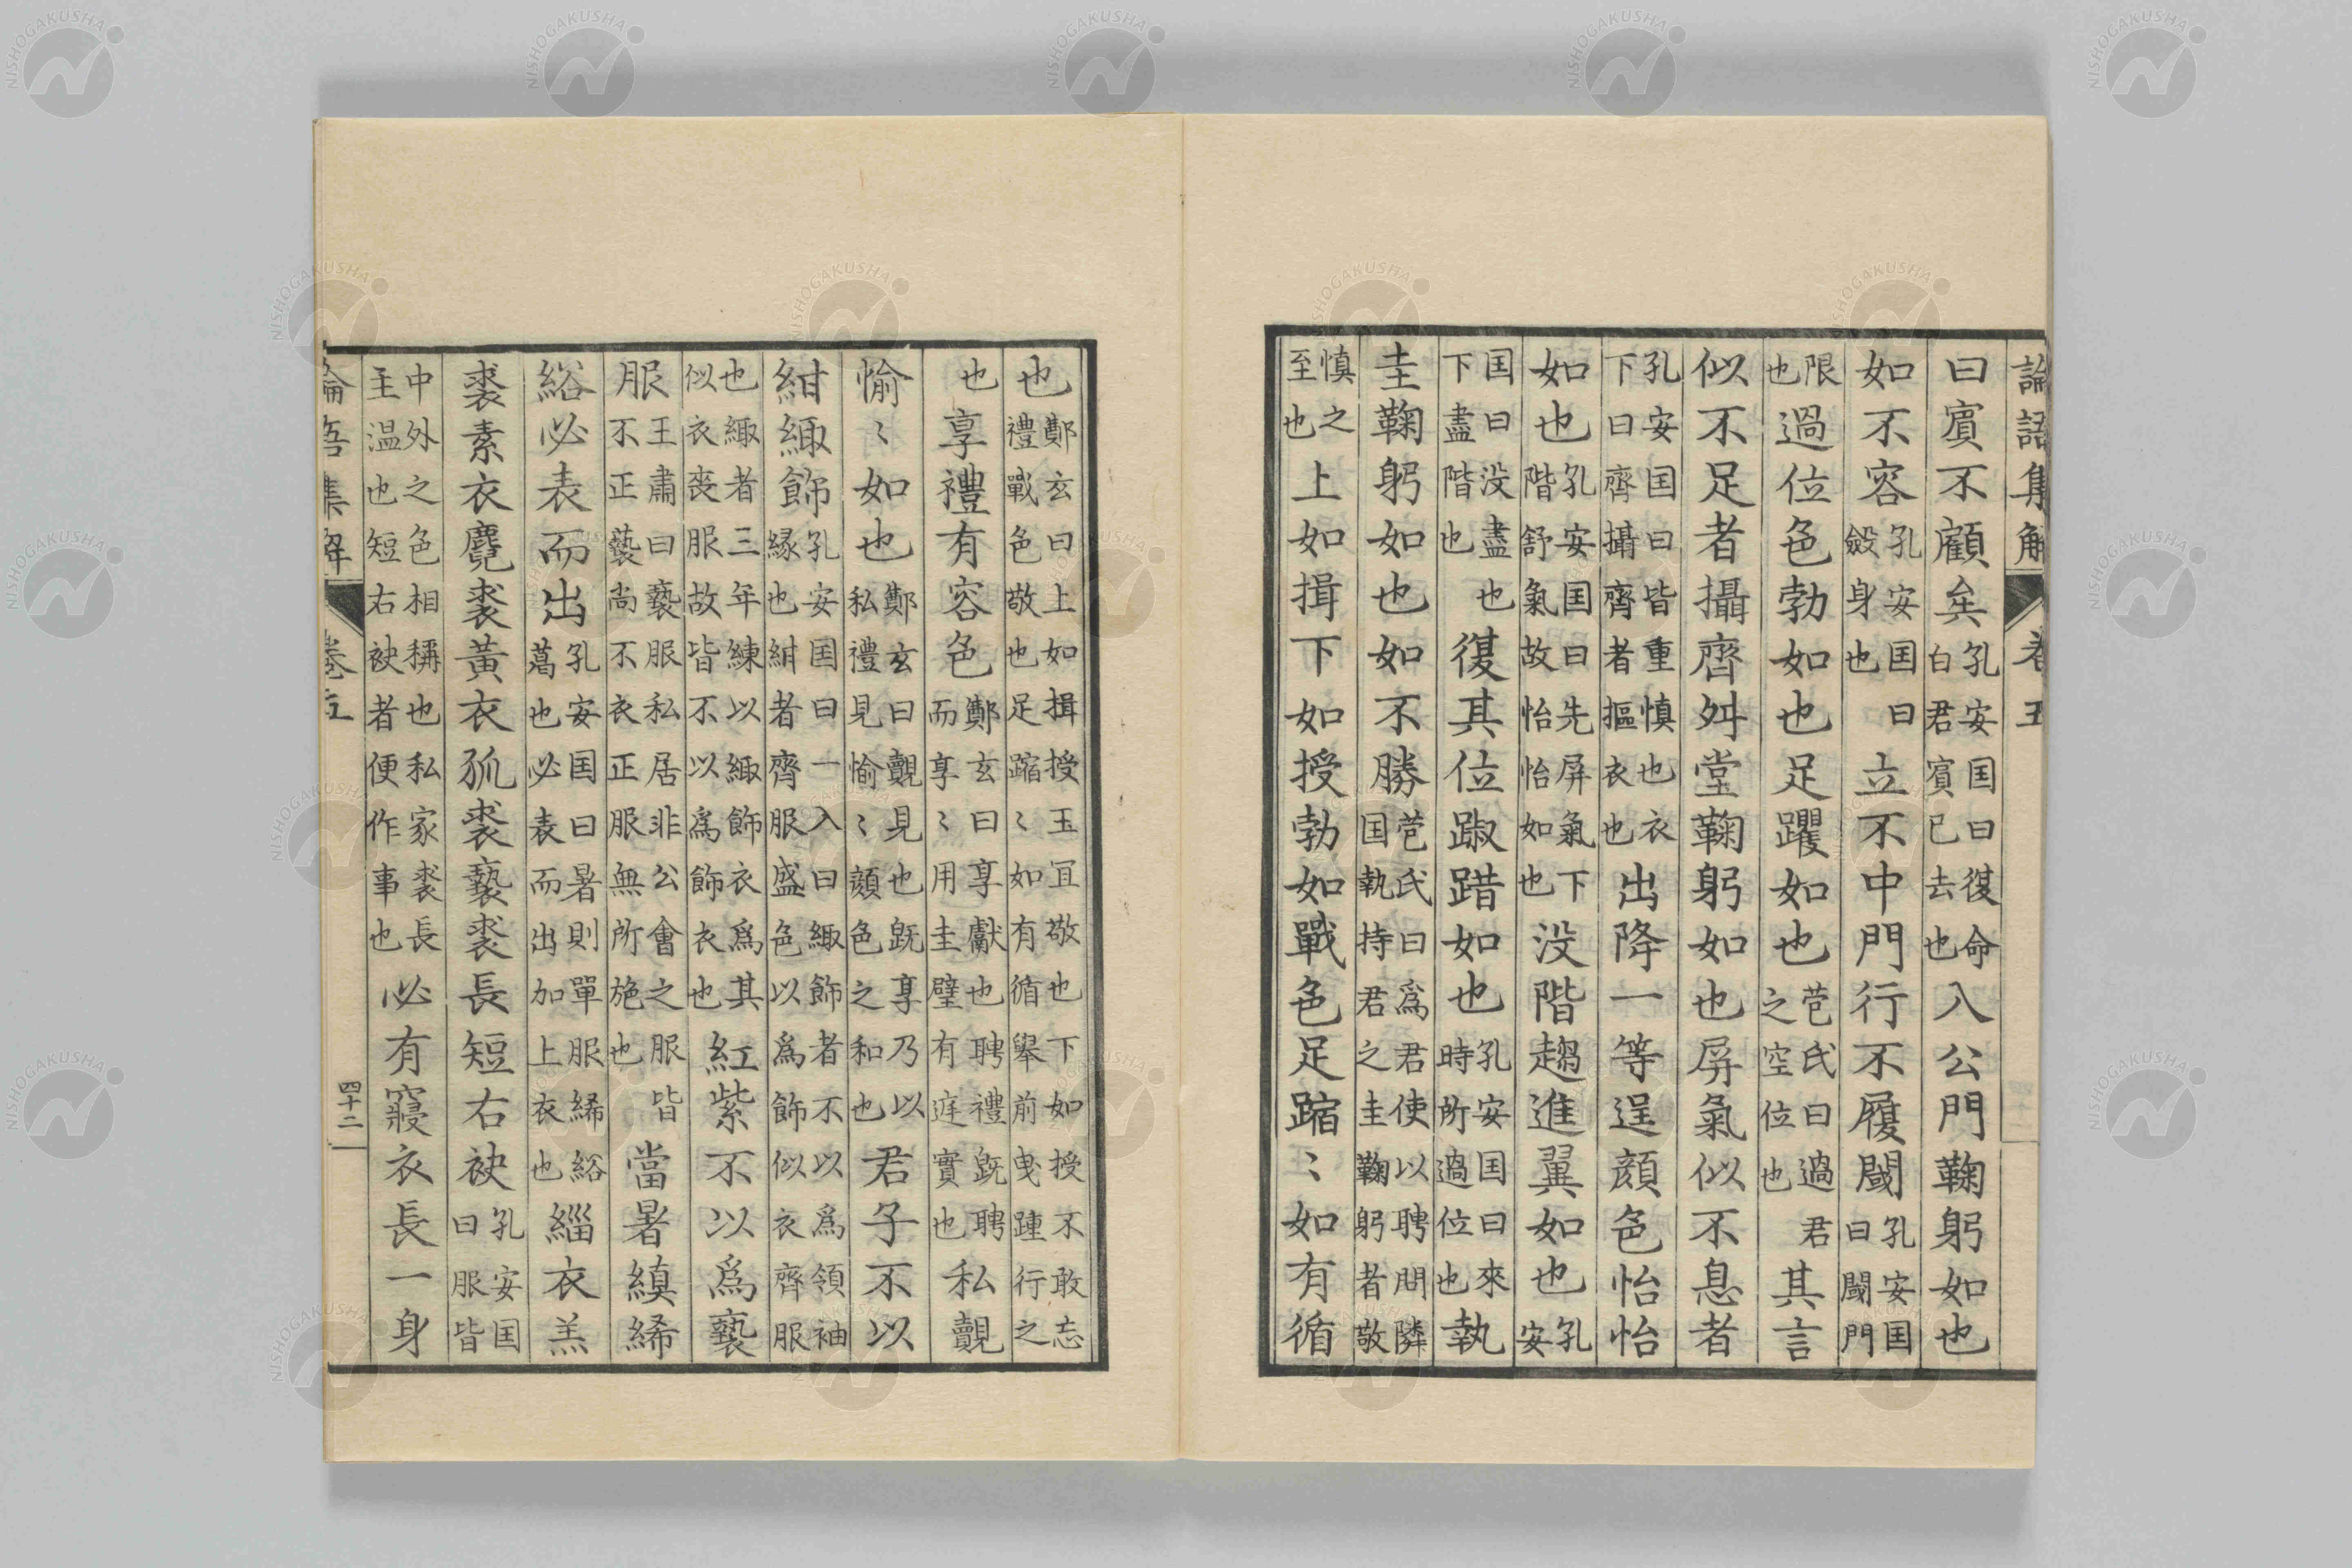 論語集解 卷五
曰賓不顧矣孔安囯曰復命白君賓已去也入公門鞠躬如也
如不容孔安囯曰斂身也立不中門行不履閾孔安囯曰閾門
限也過位色勃如也足躩如也苞氏曰過君之空位也其言
似不足者攝齊舛堂鞠躬如也屏氣似不息者
孔安囯曰皆重慎也衣下曰齊攝齊者摳衣也出降一等逞顔色怡怡
如也孔安囯曰先屏氣下階舒氣故怡怡如也没階趨進翼如也孔安
囯曰没盡也下盡階也復其位踧踖如也孔安囯曰來時所過位也執
圭鞠躬如也如不勝苞氏曰爲君使以聘問隣囯執持君之圭鞠躬者敬
慎之至也上如揖下如授勃如戰色足蹜〻如有循
也鄭玄曰上如揖授玉冝敬也下如授不敢忘禮戰色敬也足蹜〻如有循舉前曳踵行之
也享禮有容色鄭玄曰享獻也聘禮旣聘而享〻用圭璧有庭實也私覿
愉〻如也鄭玄曰覿見也旣享乃以私禮見愉〻顔色之和也君子不以
紺緅飾孔安囯曰一入曰緅飾者不以爲領袖緣也紺者齊服盛色以爲飾似衣齊服
也緅者三年練以緅飾衣爲其似衣喪服故皆不以爲飾衣也紅紫不以爲褻
服王肅曰褻服私居非公會之服皆不正褻尚不衣正服無所施也當暑縝絺
綌必表而出孔安囯曰暑則單服絺綌葛也必表而出加上衣也緇衣羔
裘素衣麑裘黃衣狐裘褻裘長短右袂孔安囯曰服皆
中外之色相稱也私家裘長主温也短右袂者便作事也必有寢衣長一身
論語集解 卷五 四十二